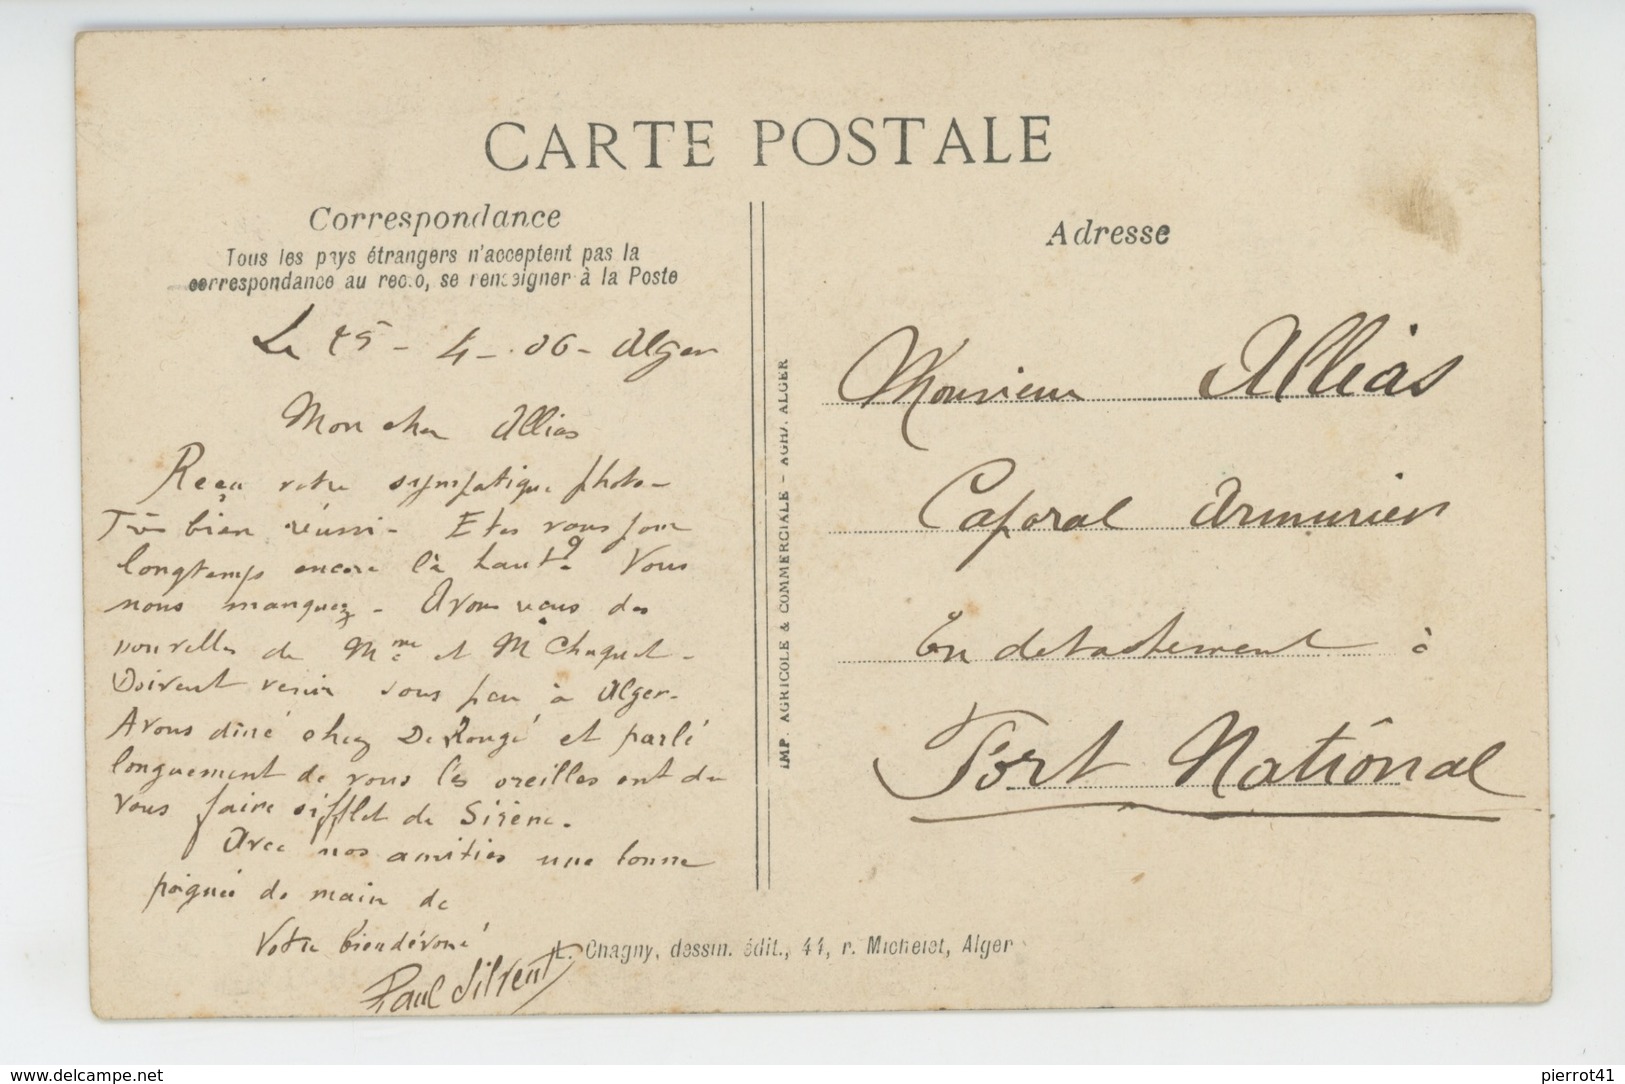 CARTE POSTALE
Correspondance
Tous les pays étrangers n'acceptent pas la
correspondance au recto, se renseigner à la Poste
Le 25 - 4 - 06 - Alger
Mon cher Allias
Reçu votre sympatique photo -
Très bien réussi - Etes vous pour
longtemps encore là haut ? Vous
nous manquez - Avons vous des
nouvelles de Mme et M Chaquet -
Doivent venir sous peu à Alger -
Avons diné chez De Rougé et parlé
longuement de vous les oreilles ont du
vous faire sifflet de Sirène.
Avec nos amitiés une bonne
poignée de main de
Votre bien dévoué
Paul Silvent
L. Chagny, dessin. édit., 44, r. Michelet, Alger
IMP. AGRICOLE & COMMERCIALE - AGHA. ALGER
Adresse
Monsieur Allias
Caporal Armurier
En detachement à
Fort National
delcampe.net
pierrot41